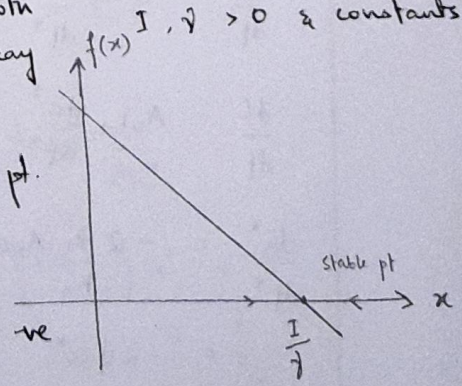 oth I, γ > 0 & constants
ay f(x)
pt.
stable pt
x
-ve
I/γ